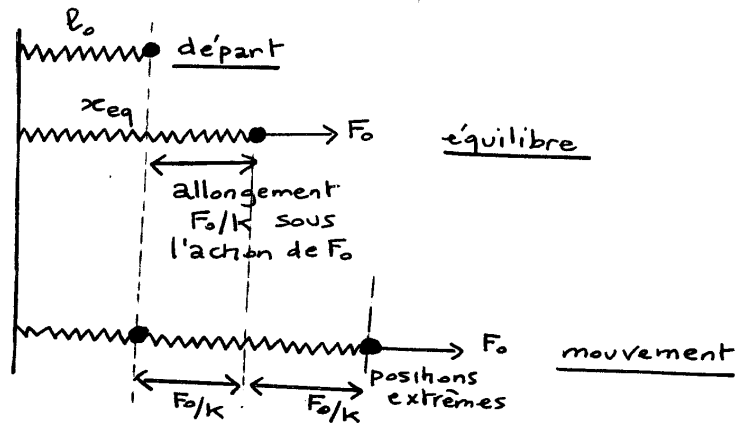 l₀
départ
x_eq
F₀
équilibre
allongement
F₀/K sous
l'action de F₀
F₀
mouvement
F₀/K
F₀/K
positions
extrêmes